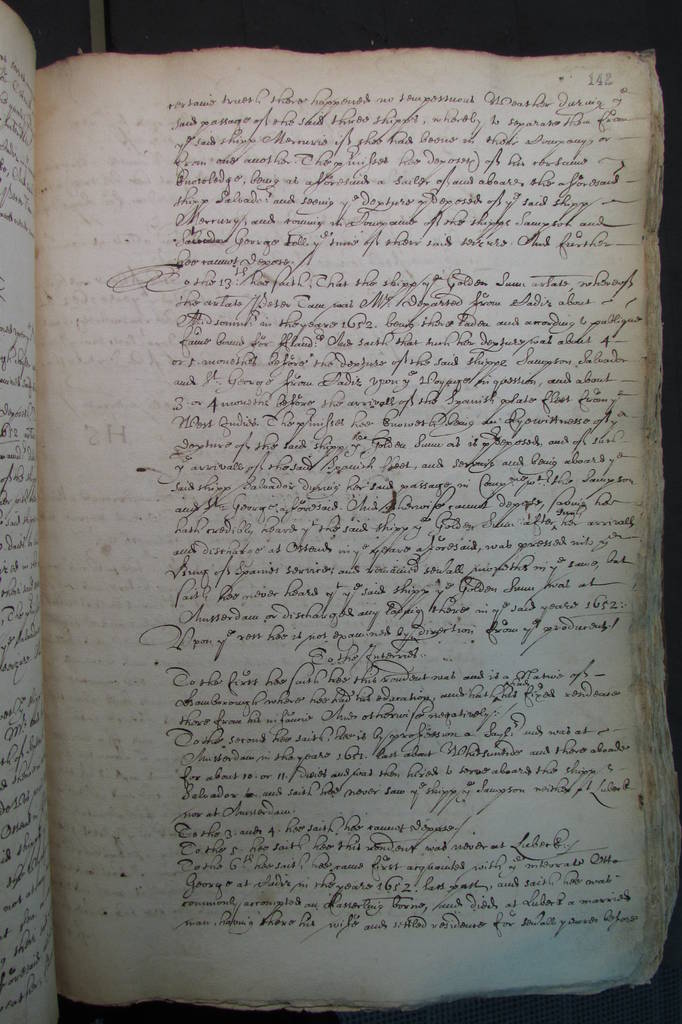 142
certaine trueth there happened no tempestuous Weather during ye
said passage of the said three shipps, whereby to separate them from
ye said shipp Mercurie if shee had beene in their Company, or
from one another. The premisses hee deposeth of his certaine
knowledge, being as aforesaid a sailer of and aboard the aforesaid
shipp Salvador and seeing ye depture predeposed of ye said shipp
Mercury, and coming in Companie of the shipps Sampson and
Salvador George till ye time of their said seizure. And further
hee cannot depose./
To the 13th hee saith, That the shipp ye Golden Sunn arlate, whereof
the arlate Peter Tam was Mr. departed from Cadiz about
Midsommer in the yeare 1652. being there laden and according to publique
fame bound for fland: And saith that such her depture was about 4
or 5 moneths before the depture of the said shipps Sampson, Salvador
and St. George from Cadiz upon ye Voyage in question, and about
3 or 4 moneths before the arrivall of the Spanish plate fleet from ye
West Indies. The premisses hee knoweth being an Eyewitnesse of ye
depture of the said shipp ye Golden Sunn as is predeposed, and of such
ye arrivall of the said Spanish fleet, and serving and being aboard ye
said shipp Salvador during her said passage in Company with the Sampson
and St. George aforesaid. And otherwise cannot depose, saving hee
hath credibly heard yt the said shipp ye Golden Sunn after her arrivall
and discharge at Ostend in ye yeare aforesaid, was pressed into ye
King of Spaines service, and remained severall moneths in ye same, but
saith hee never heard yt ye said shipp ye Golden Sunn was at
Amsterdam or discharged any lading there in ye said yeare 1652:
Upon ye rest hee is not examined by direction from ye producent./
To the Interries.
To the first hee saith hee this rendent was and is a Native of
Hamborough where hee had his education, and hath had his fixed residence
there from his infancie And otherwise negatively:/
To the second hee saith hee is by profession a Saylor and was at
Amsterdam in the yeare 1651. last about Whitsuntide and there aboade
for about 10 or 11 daies and was then hired to serve aboard the shipp
Salvador and saith hee never saw ye shipp ye Sampson neither at Lubeck
nor at Amsterdam.
To the 3. and 4. hee saith hee cannot depose./
To the 5. hee saith hee this rendent was never at Lubeck./
To the 6th hee saith, hee came first acquainted with ye interrate Otto
George at Cadiz in the yeare 1652. last past, and saith hee was
commonly accompted an Easterling borne, and dwelt at Lubeck a married
man, having there his wife and setled residence for severall yeares before